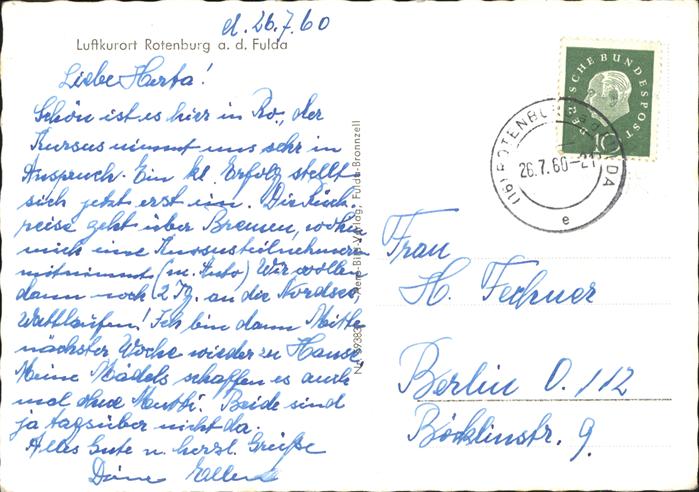 d. 26.7.60
Luftkurort Rotenburg a. d. Fulda
Liebe Herta!
Schön ist es hier in Ro., der
Kursus nimmt uns sehr in
Anspruch. Ein kl. Erfolg stellt
sich jetzt erst ein. Die Rück-
reise geht über Bremen, wohin
mich eine Kursusteilnehmerin
mitnimmt (m. Auto) Wir wollen
dann noch 2 Tg. an der Nordsee
Wattlaufen! Ich bin dann Mitte
nächster Woche wieder zu Hause
Meine Mädels schaffen es auch
mal ohne Mutti. Beide sind
ja tagsüber nicht da.
Alles Gute u. herzl. Grüße
Deine Ellen
Verlag, Fulda-Bronnzell
DEUTSCHE BUNDESPOST
10
(16) ROTENBURG FULDA
26.7.60-21
e
Frau
H. Fechner
Berlin O. 112
Böcklinstr. 9.